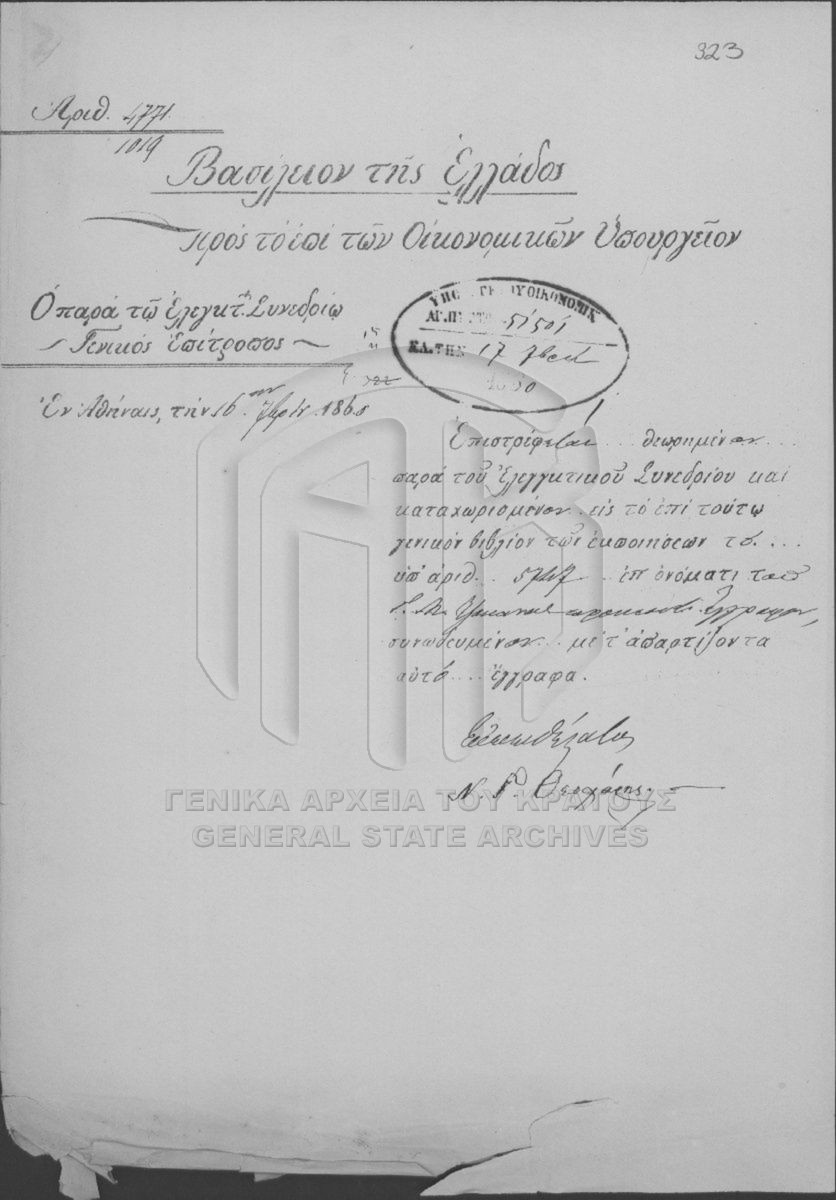 323
Ἀριθ. 4771
1019
Βασίλειον τῆς Ἑλλάδος
πρὸς τὸ ἐπὶ τῶν Οἰκονομικῶν Ὑπουργεῖον
Ὁ παρὰ τῷ Ἐλεγκτ. Συνεδρίῳ
Γενικὸς Ἐπίτροπος
ΟΙΚΟΝΟΜΙΚ
51501
ΕΛ. ΤΗΝ 17
Ἐν Ἀθήναις, τὴν 16 186
Ἐπιστρέφεται.. θεωρημένον...
παρὰ τοῦ Ἐλεγγκτικοῦ Συνεδρίου καὶ
καταχωρισμένον.. εἰς τὸ ἐπὶ τούτῳ
γενικὸν βιβλίον τῶν ἐκποιήσεων τὸ....
ὑπ' ἀριθ... ἐπ' ὀνόματι τοῦ
συνωδευμένον.. μὲ τ' ἀπαρτίζοντα
αὐτό.... ἔγγραφα.
Ν. Γ.
ΓΕΝΙΚΑ ΑΡΧΕΙΑ ΤΟΥ ΚΡΑΤΟΥΣ
GENERAL STATE ARCHIVES